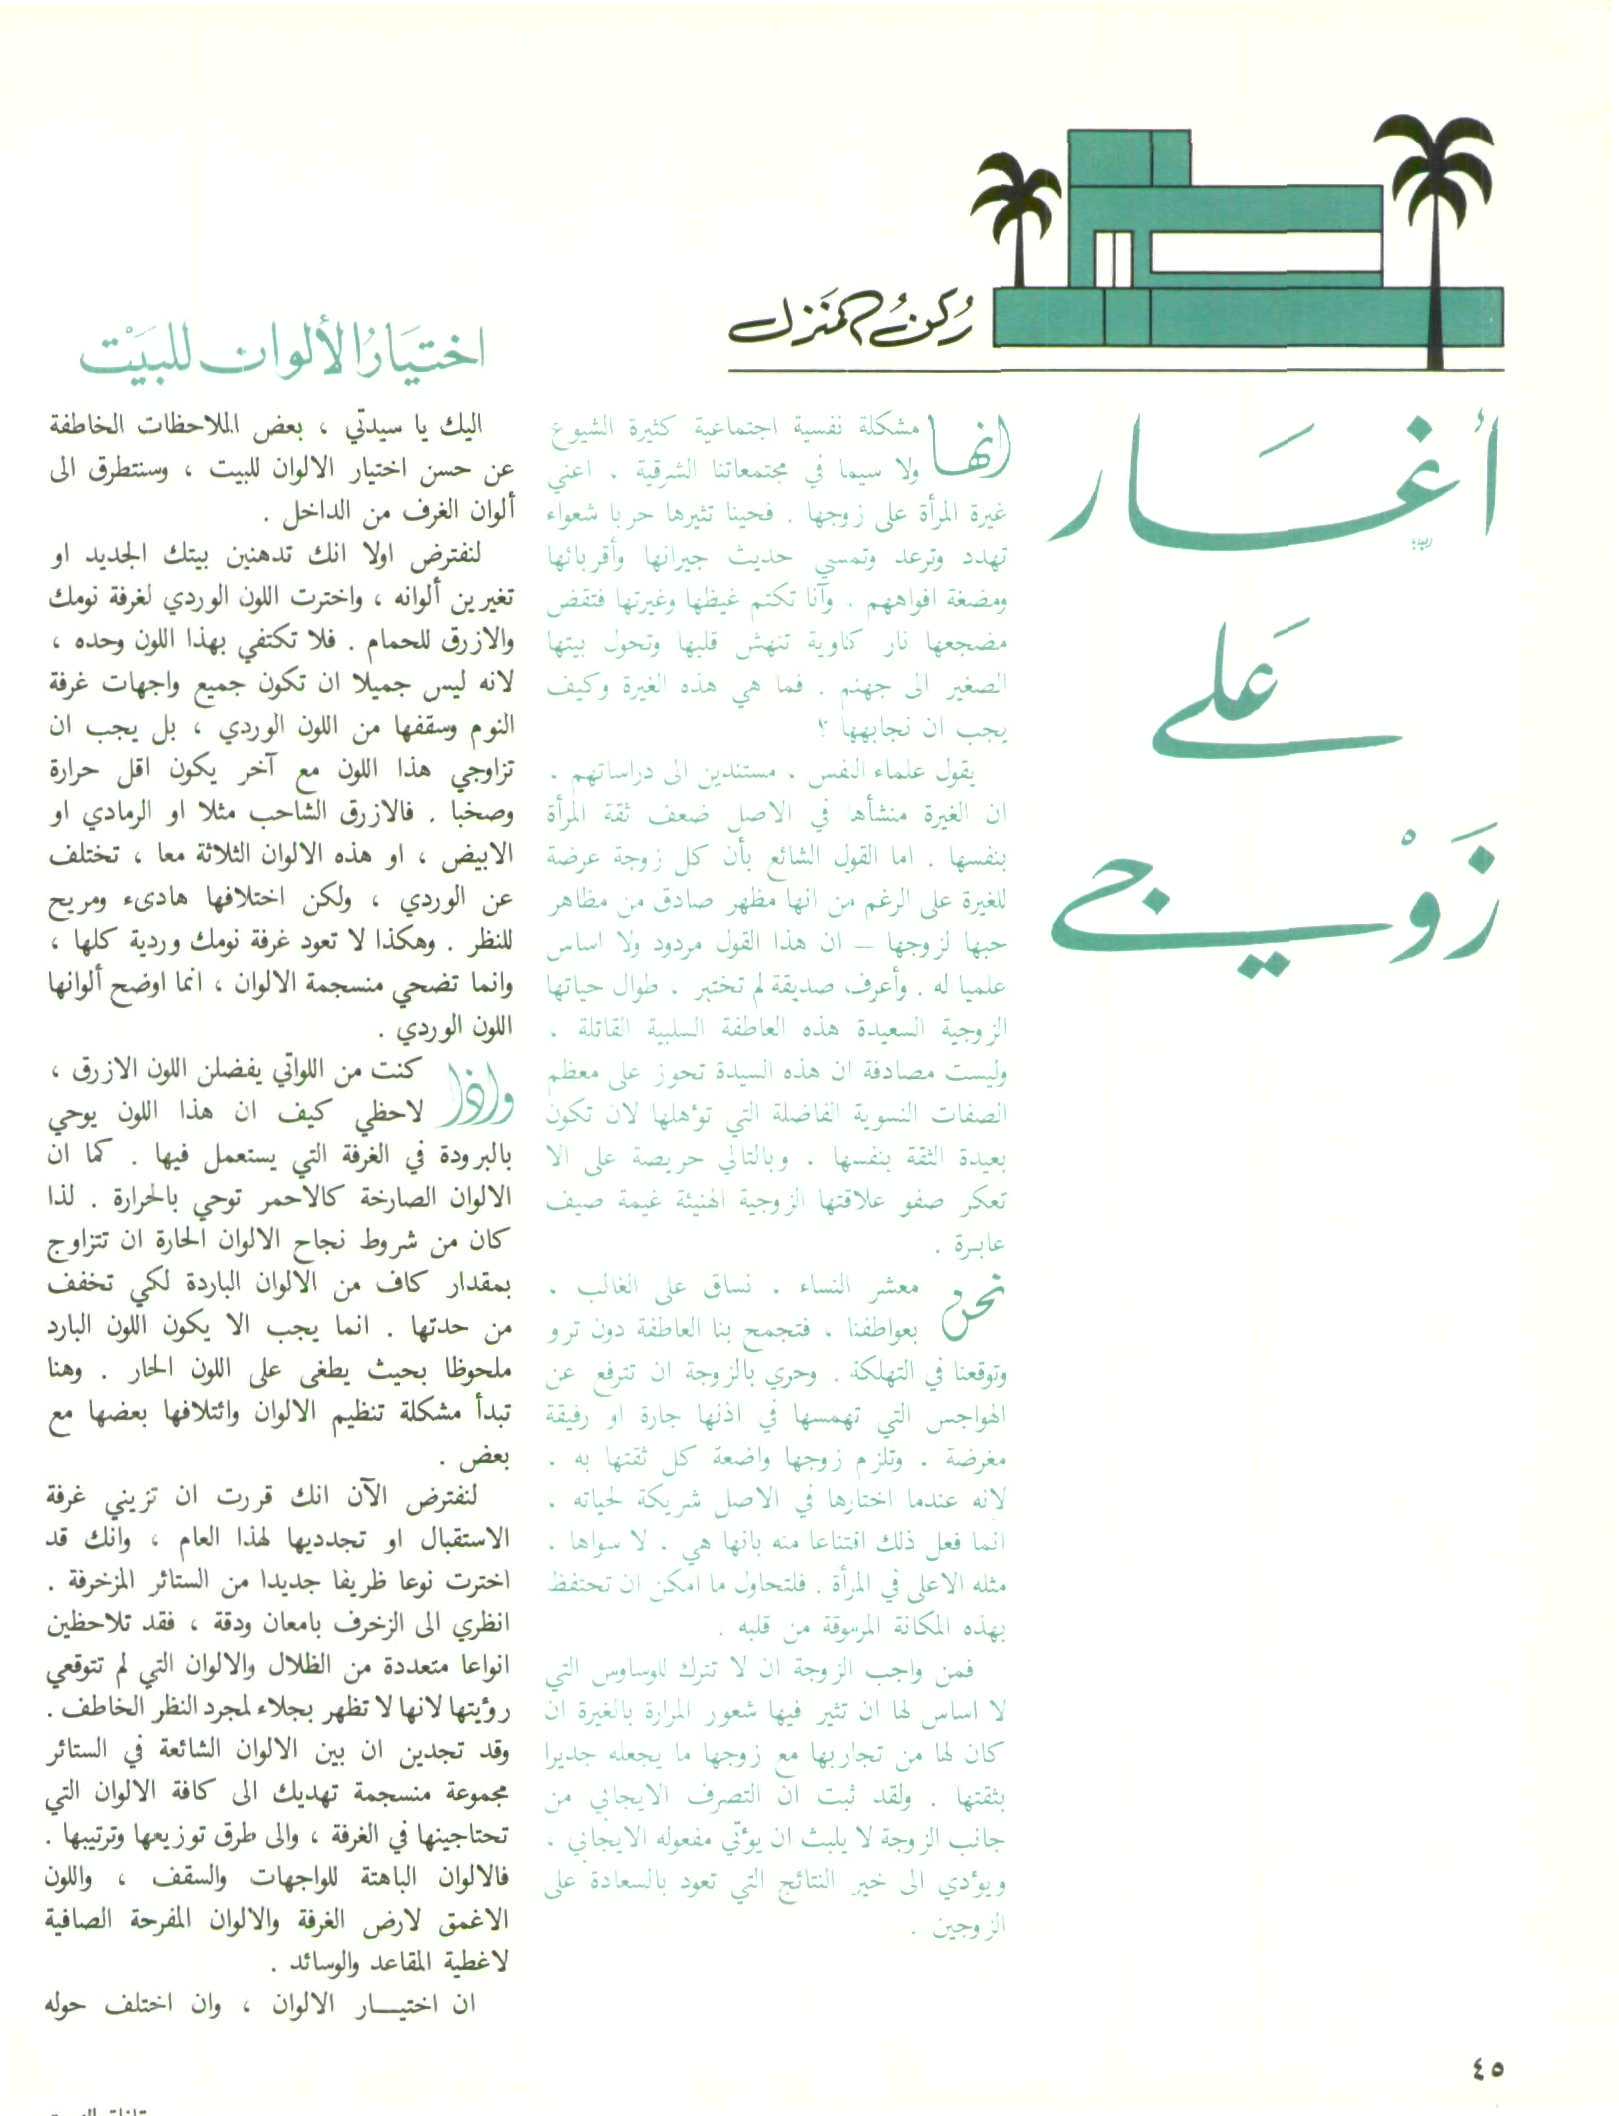 ركن المنزل
أغار
على
زوجي
انها مشكلة نفسية اجتماعية كثيرة الشيوع
ولا سيما في مجتمعاتنا الشرقية . اعني
غيرة المرأة على زوجها . فحينا تثيرها حربا شعواء
تهدد وترعد وتمسي حديث جيرانها وأقربائها
ومضغة افواههم . وآنا تكتم غيظها وغيرتها فتقض
مضجعها نار كاوية تنهش قلبها وتحول بيتها
الصغير الى جهنم . فما هي هذه الغيرة وكيف
يجب ان نجابهها ؟
يقول علماء النفس ، مستندين الى دراساتهم ،
ان الغيرة منشأها في الاصل ضعف ثقة المرأة
بنفسها . اما القول الشائع بأن كل زوجة عرضة
للغيرة على الرغم من انها مظهر صادق من مظاهر
حبها لزوجها – ان هذا القول مردود ولا اساس
علميا له . وأعرف صديقة لم تختبر ، طوال حياتها
الزوجية السعيدة هذه العاطفة السلبية القاتلة .
وليست مصادفة ان هذه السيدة تحوز على معظم
الصفات النسوية الفاضلة التي تؤهلها لان تكون
بعيدة الثقة بنفسها . وبالتالي حريصة على الا
تعكر صفو علاقتها الزوجية الهنيئة غيمة صيف
عابرة .
نحن معشر النساء ، نساق على الغالب ،
بعواطفنا ، فتجمح بنا العاطفة دون ترو
وتوقعنا في التهلكة . وحري بالزوجة ان تترفع عن
الهواجس التي تهمسها في اذنها جارة او رفيقة
مغرضة . وتلزم زوجها واضعة كل ثقتها به .
لانه عندما اختارها في الاصل شريكة لحياته ،
انما فعل ذلك اقتناعا منه بانها هي ، لا سواها ،
مثله الاعلى في المرأة . فلتحاول ما امكن ان تحتفظ
بهذه المكانة المرموقة من قلبه .
فمن واجب الزوجة ان لا تترك للوساوس التي
لا اساس لها ان تثير فيها شعور المرارة بالغيرة ان
كان لها من تجاربها مع زوجها ما يجعله جديرا
بثقتها . ولقد ثبت ان التصرف الايجابي من
جانب الزوجة لا يلبث ان يؤتي مفعوله الايجابي ،
ويؤدي الى خير النتائج التي تعود بالسعادة على
الزوجين .
اختيار الألوان للبيت
اليك يا سيدتي ، بعض الملاحظات الخاطفة
عن حسن اختيار الالوان للبيت ، وسنتطرق الى
ألوان الغرف من الداخل .
لنفترض اولا انك تدهنين بيتك الجديد او
تغيرين ألوانه ، واخترت اللون الوردي لغرفة نومك
والازرق للحمام . فلا تكتفي بهذا اللون وحده ،
لانه ليس جميلا ان تكون جميع واجهات غرفة
النوم وسقفها من اللون الوردي ، بل يجب ان
تزاوجي هذا اللون مع آخر يكون اقل حرارة
وصخبا . فالازرق الشاحب مثلا او الرمادي او
الابيض ، او هذه الالوان الثلاثة معا ، تختلف
عن الوردي ، ولكن اختلافها هادىء ومريح
للنظر . وهكذا لا تعود غرفة نومك وردية كلها ،
وانما تضحي منسجمة الالوان ، انما اوضح ألوانها
اللون الوردي .
واذا كنت من اللواتي يفضلن اللون الازرق ،
لاحظي كيف ان هذا اللون يوحي
بالبرودة في الغرفة التي يستعمل فيها . كما ان
الالوان الصارخة كالاحمر توحي بالحرارة . لذا
كان من شروط نجاح الالوان الحارة ان تتزاوج
بمقدار كاف من الالوان الباردة لكي تخفف
من حدتها . انما يجب الا يكون اللون البارد
ملحوظا بحيث يطغى على اللون الحار . وهنا
تبدأ مشكلة تنظيم الالوان وائتلافها بعضها مع
بعض .
لنفترض الآن انك قررت ان تزيني غرفة
الاستقبال او تجدديها لهذا العام ، وانك قد
اخترت نوعا ظريفا جديدا من الستائر المزخرفة .
انظري الى الزخرف بامعان ودقة ، فقد تلاحظين
انواعا متعددة من الظلال والالوان التي لم تتوقعي
رؤيتها لانها لا تظهر بجلاء لمجرد النظر الخاطف .
وقد تجدين ان بين الالوان الشائعة في الستائر
مجموعة منسجمة تهديك الى كافة الالوان التي
تحتاجينها في الغرفة ، والى طرق توزيعها وترتيبها .
فالالوان الباهتة للواجهات والسقف ، واللون
الاغمق لارض الغرفة والالوان المفرحة الصافية
لاغطية المقاعد والوسائد .
ان اختيـــار الالوان ، وان اختلف حوله
٤٥